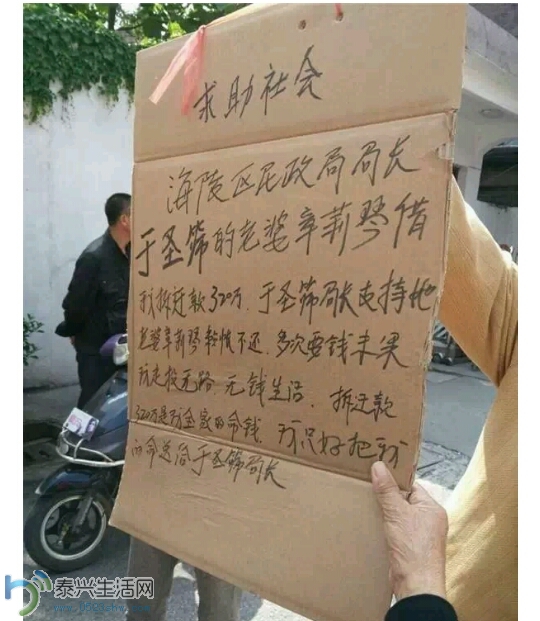 求助社会
海陵区民政局局长
于圣筛的老婆章莉琴借
我拆迁款320万.于圣筛局长支持她
老婆章莉琴 不还.多次要钱未果
玩走投无路.无钱生活.拆迁款
320万是万全家的命钱.我只好把我
的命送给于圣筛局长
泰兴生活网